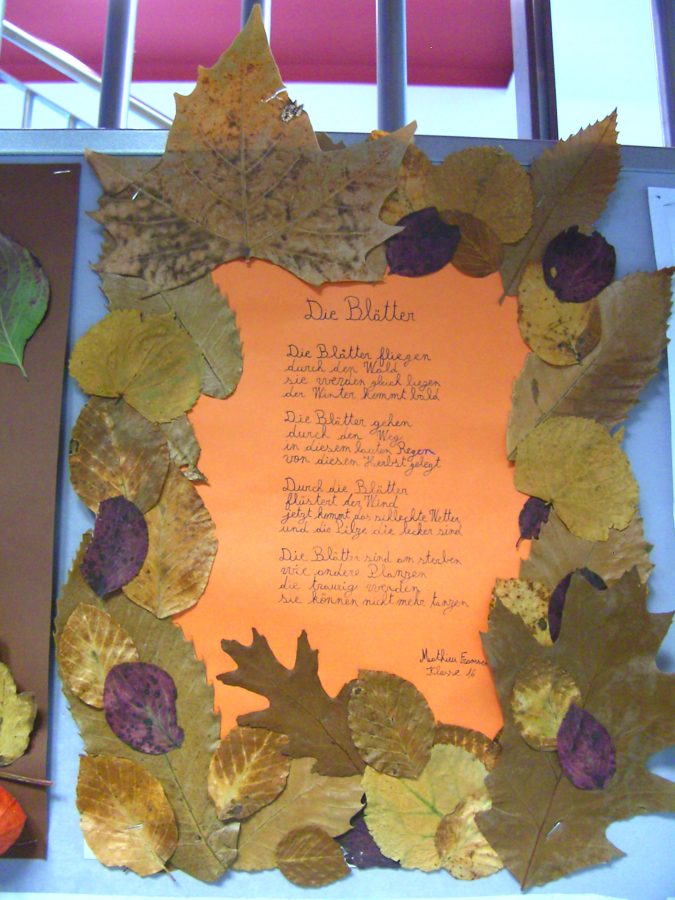 Die Blätter
Die Blätter fliegen
durch den Wald
sie werden gleich liegen
der Winter kommt bald
Die Blätter gehen
durch den Weg
in diesem lauten Regen
von diesem Herbst gelegt
Durch die Blätter
flüstert der Wind
jetzt kommt das schlechte Wetter
und die Pilze die lecker sind
Die Blätter sind am sterben
wie andere Planzen
die traurig werden
sie können nicht mehr tanzen
Matthieu
Klasse 16